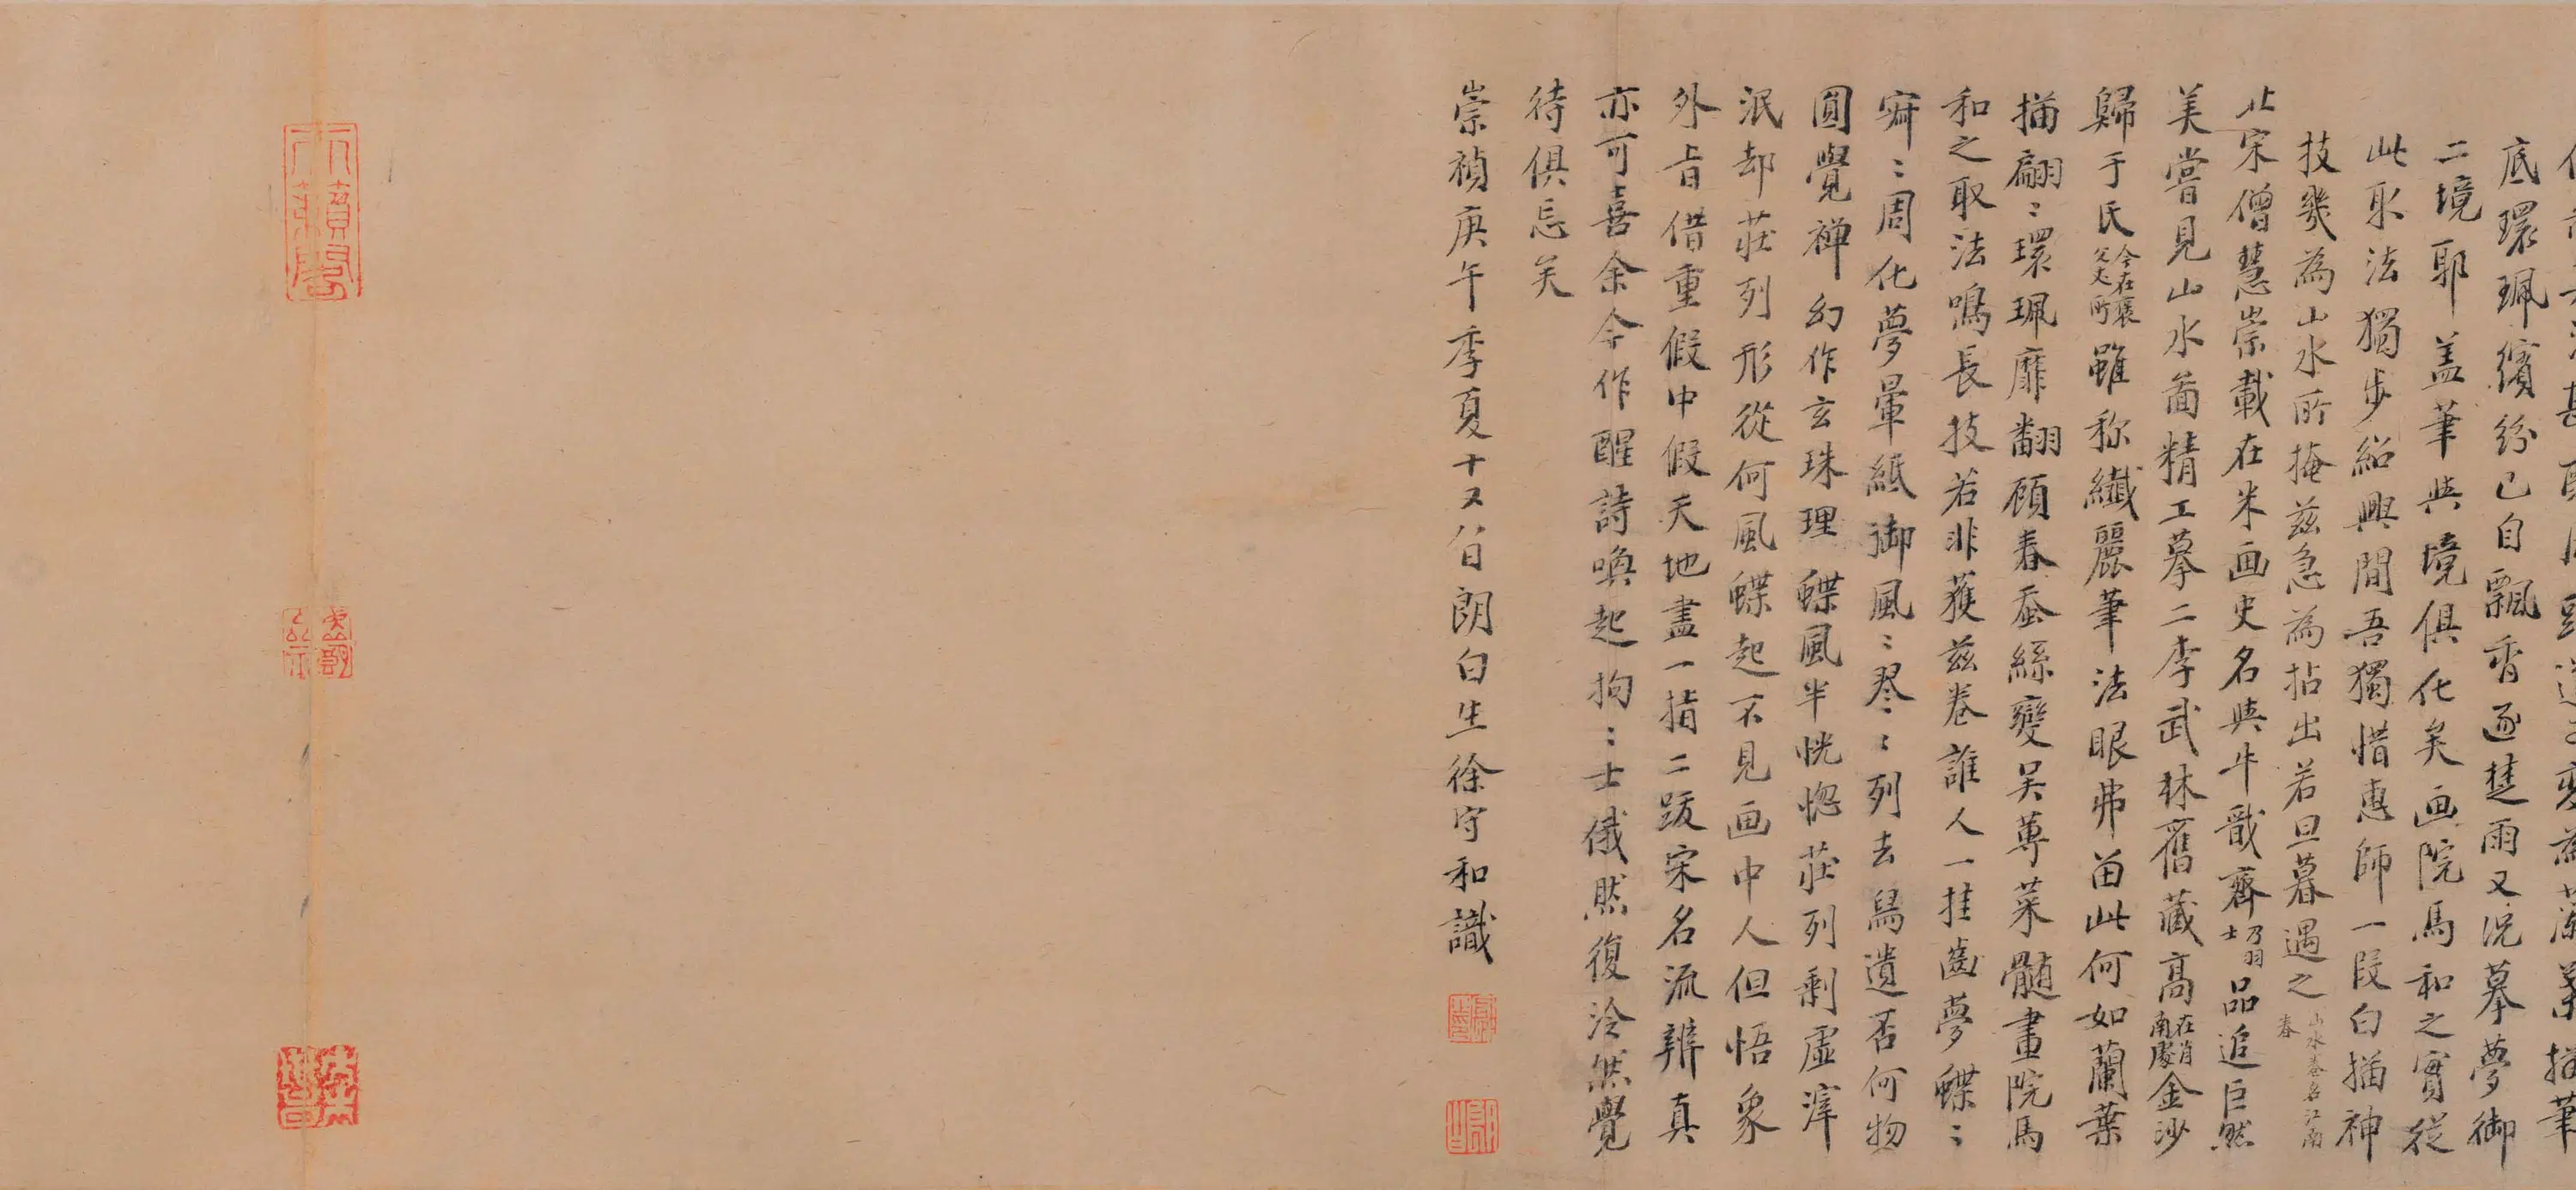 底環珮繽紛已自飄香逐楚雨又況摹夢御
二境耶蓋筆與境俱化矣画院馬和之實從
此取法獨步紹興間吾獨惜惠師一段白描神
技幾為山水所掩茲急為拈出若旦暮遇之山水卷名江南春
北宋僧慧崇載在米画史名與牛戩齊乃羽士品追巨然
美嘗見山水啚精工摹二李武林舊藏高在肖南處金沙
歸于氏今在襄父丈所雖称纖麗筆法眼弗畱此何如蘭葉
描翩〻環珮靡翻顧春蚕絲變吳蓴菜髓畫院馬
和之取法鳴長技若非獲茲卷誰人一挂齒夢蝶〻
寤〻周化夢暈紙御風〻翏〻列去舄遺否何物
圓覺禪幻作玄珠理蝶風半恍惚莊列剩虛滓
泯却莊列形從何風蝶起不見画中人但悟象
外旨借重假中假天地盡一指二跋宋名流辨真
亦可喜余今作醒詩喚起拘〻士俄然復泠然覺
待俱忘矣
崇禎庚午季夏十又八日朗白生徐守和識